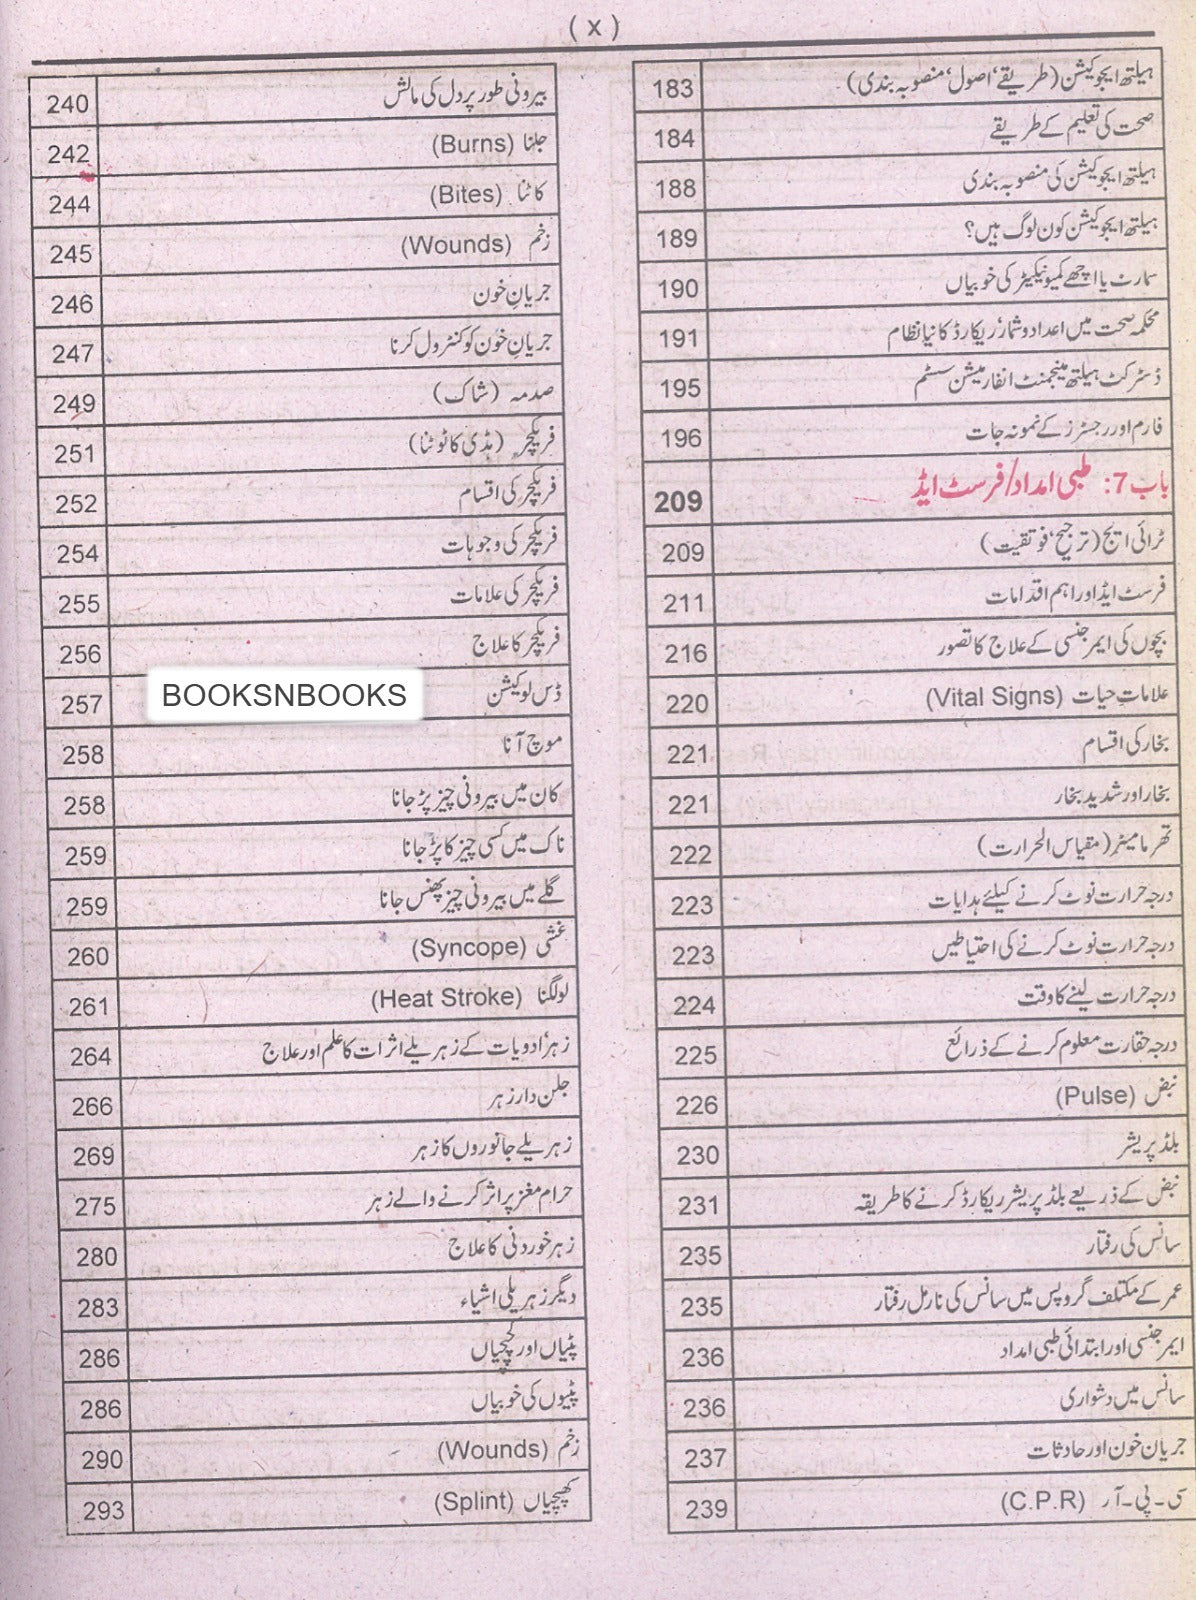 ( x )
ہیلتھ ایجوکیشن (طریقے، اصول، منصوبہ بندی) 183
صحت کی تعلیم کے طریقے 184
ہیلتھ ایجوکیشن کی منصوبہ بندی 188
ہیلتھ ایجوکیشن کون لوگ ہیں؟ 189
سمارٹ یا اچھے کمیونیکیٹر کی خوبیاں 190
محکمہ صحت میں اعداد و شمار، ریکارڈ کا نیا نظام 191
ڈسٹرکٹ ہیلتھ مینجمنٹ انفارمیشن سسٹم 195
فارم اور رجسٹرز کے نمونہ جات 196
باب 7: طبی امداد/فرسٹ ایڈ 209
ٹرائی ایج (ترجیح، فوقیت) 209
فرسٹ ایڈ اور اہم اقدامات 211
بچوں کی ایمرجنسی کے علاج کا تصور 216
علاماتِ حیات (Vital Signs) 220
بخار کی اقسام 221
بخار اور شدید بخار 221
تھرمامیٹر (مقیاس الحرارت) 222
درجہ حرارت نوٹ کرنے کیلئے ہدایات 223
درجہ حرارت نوٹ کرنے کی احتیاطیں 223
درجہ حرارت لینے کا وقت 224
درجہ حقارت معلوم کرنے کے ذرائع 225
نبض (Pulse) 226
بلڈ پریشر 230
نبض کے ذریعے بلڈ پریشر ریکارڈ کرنے کا طریقہ 231
سانس کی رفتار 235
عمر کے مکتلف گروپس میں سانس کی نارمل رفتار 235
ایمرجنسی اور ابتدائی طبی امداد 236
سانس میں دشواری 236
جریان خون اور حادثات 237
سی-پی-آر (C.P.R) 239
بیرونی طور پر دل کی مالش 240
جلنا (Burns) 242
کاٹنا (Bites) 244
زخم (Wounds) 245
جریانِ خون 246
جریانِ خون کو کنٹرول کرنا 247
صدمہ (شاک) 249
فریکچر (ہڈی کا ٹوٹنا) 251
فریکچر کی اقسام 252
فریکچر کی وجوہات 254
فریکچر کی علامات 255
فریکچر کا علاج 256
ڈس لوکیشن 257
BOOKSNBOOKS
موچ آنا 258
کان میں بیرونی چیز پڑ جانا 258
ناک میں کسی چیز کا پڑ جانا 259
گلے میں بیرونی چیز پھنس جانا 259
غشی (Syncope) 260
لو لگنا (Heat Stroke) 261
زہر، ادویات کے زہریلے اثرات کا علم اور علاج 264
جلن دار زہر 266
زہریلے جانوروں کا زہر 269
حرام مغز پر اثر کرنے والے زہر 275
زہر خوردنی کا علاج 280
دیگر زہریلی اشیاء 283
پٹیاں اور کھپچیاں 286
پٹیوں کی خوبیاں 286
زخم (Wounds) 290
کھپچیاں (Splint) 293